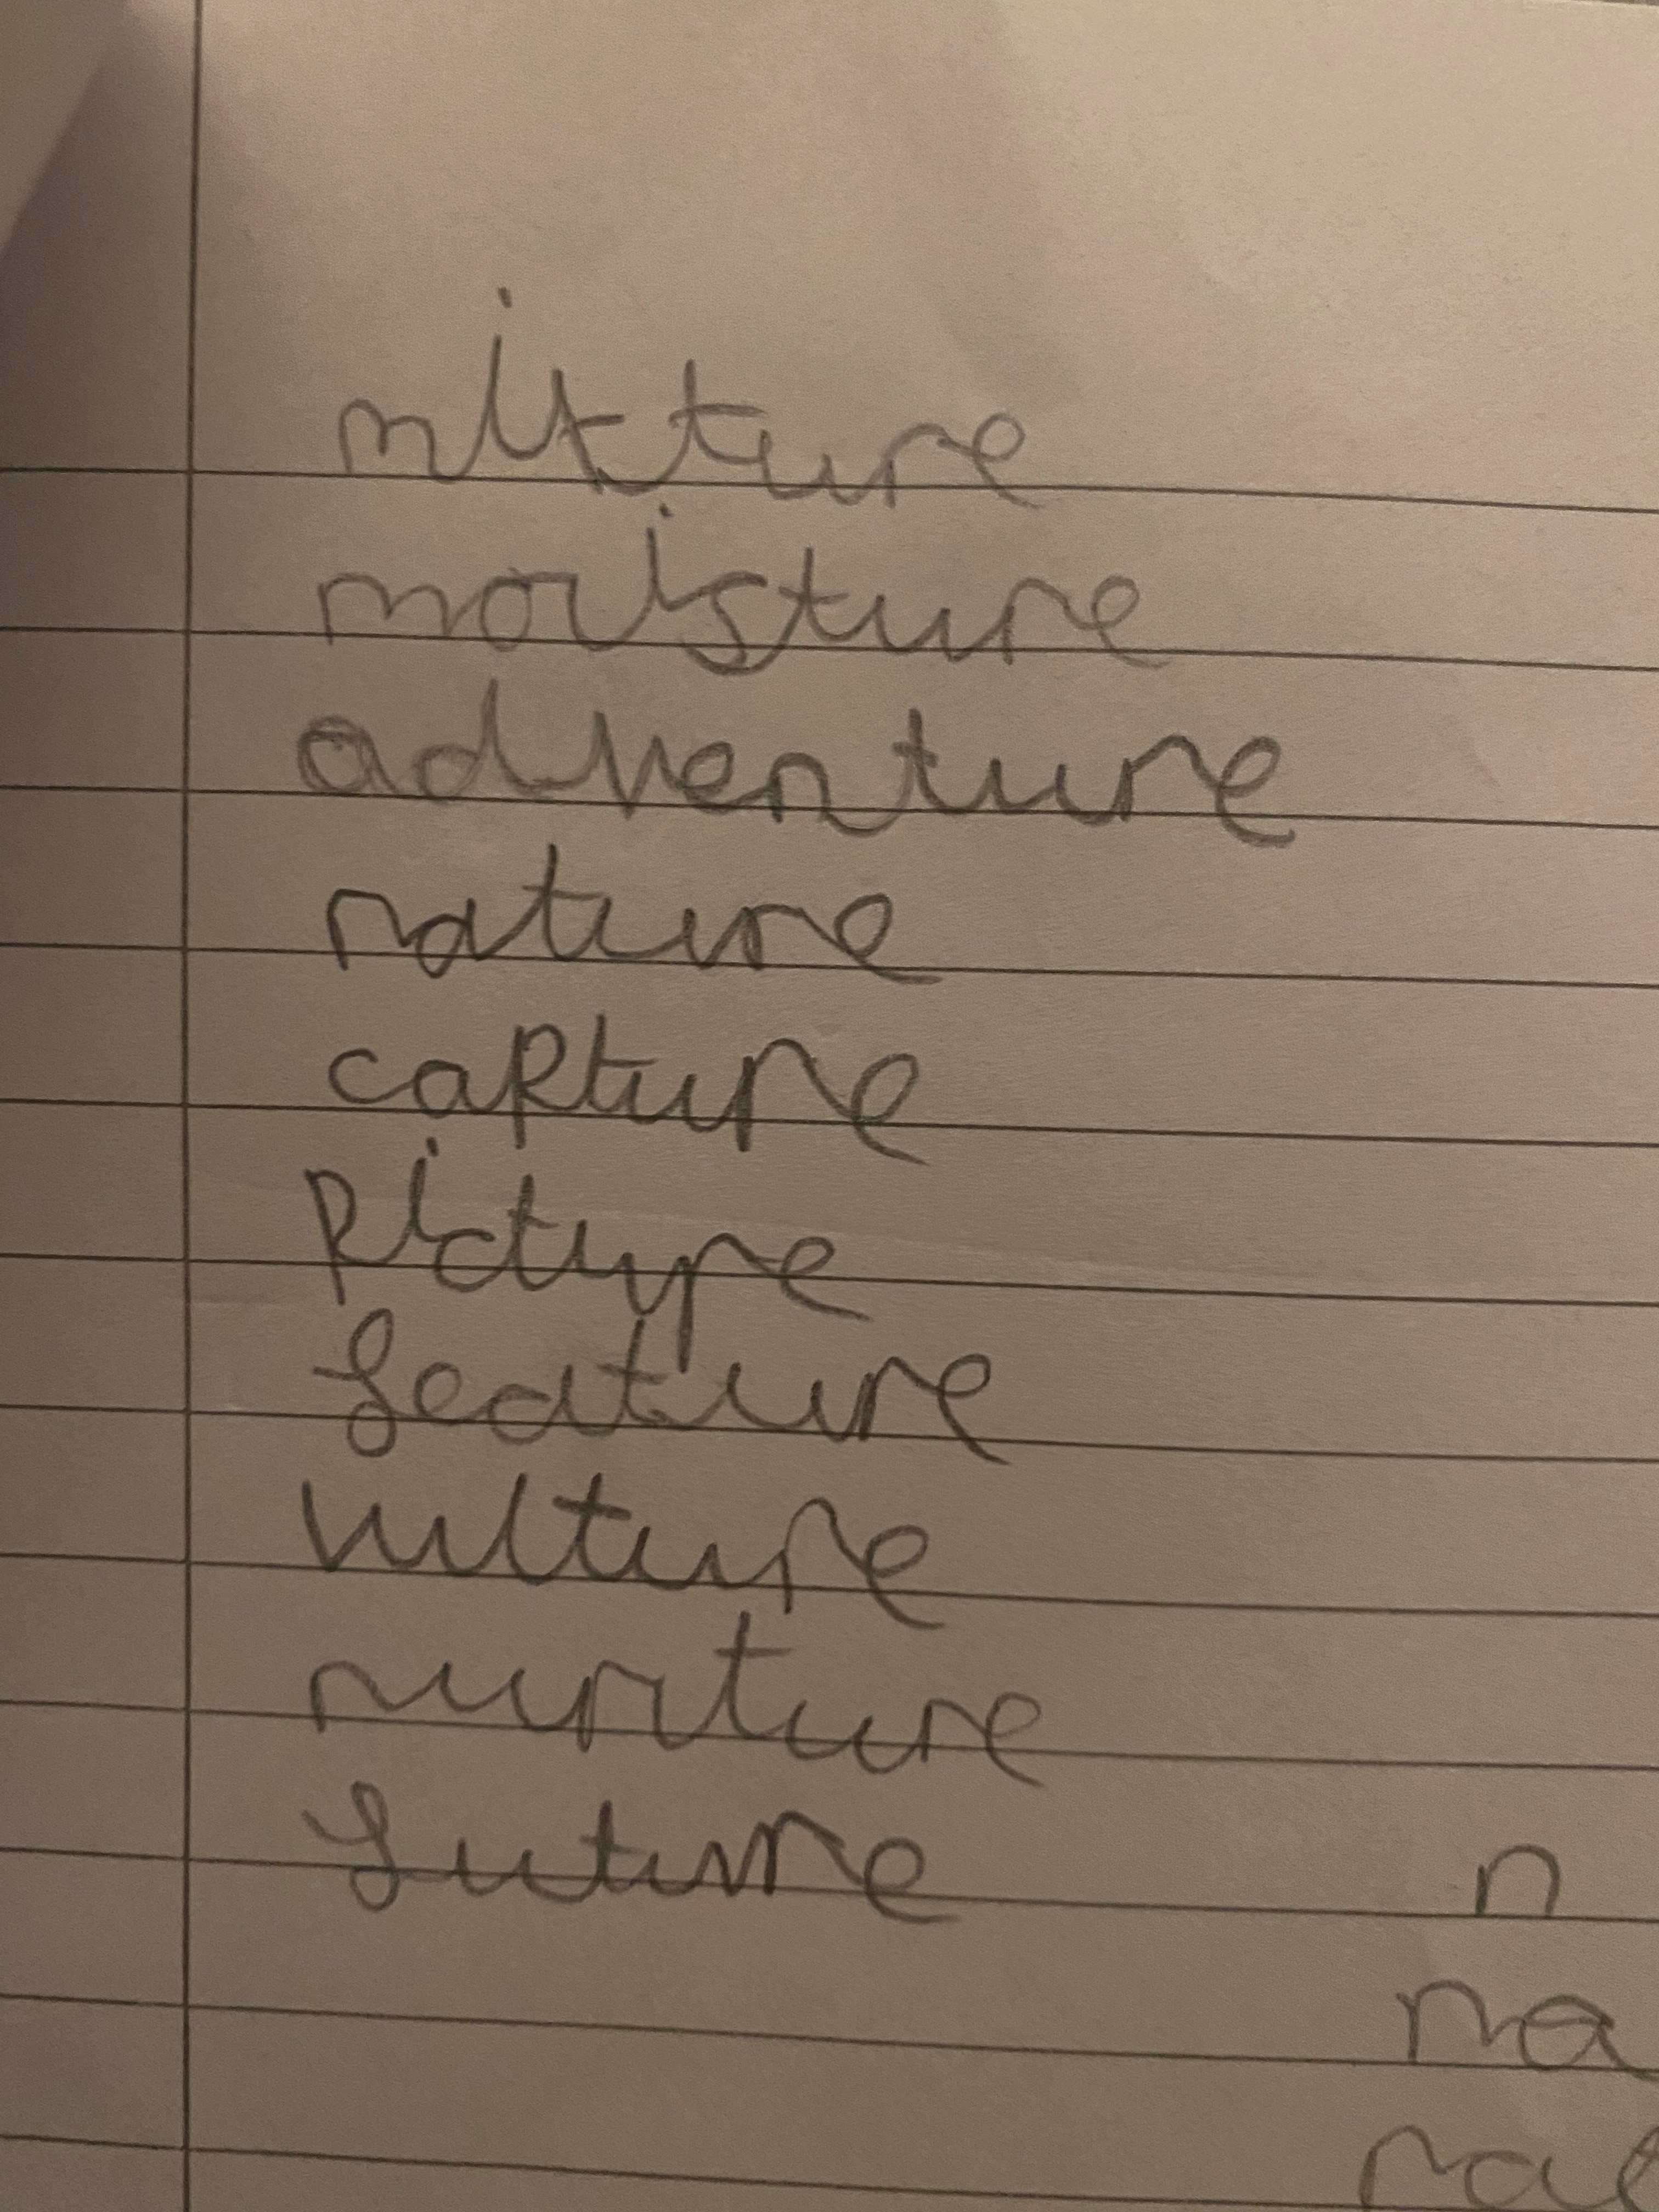 mixture
moisture
adventure
nature
capture
picture
feature
vulture
nurture
future
n
na